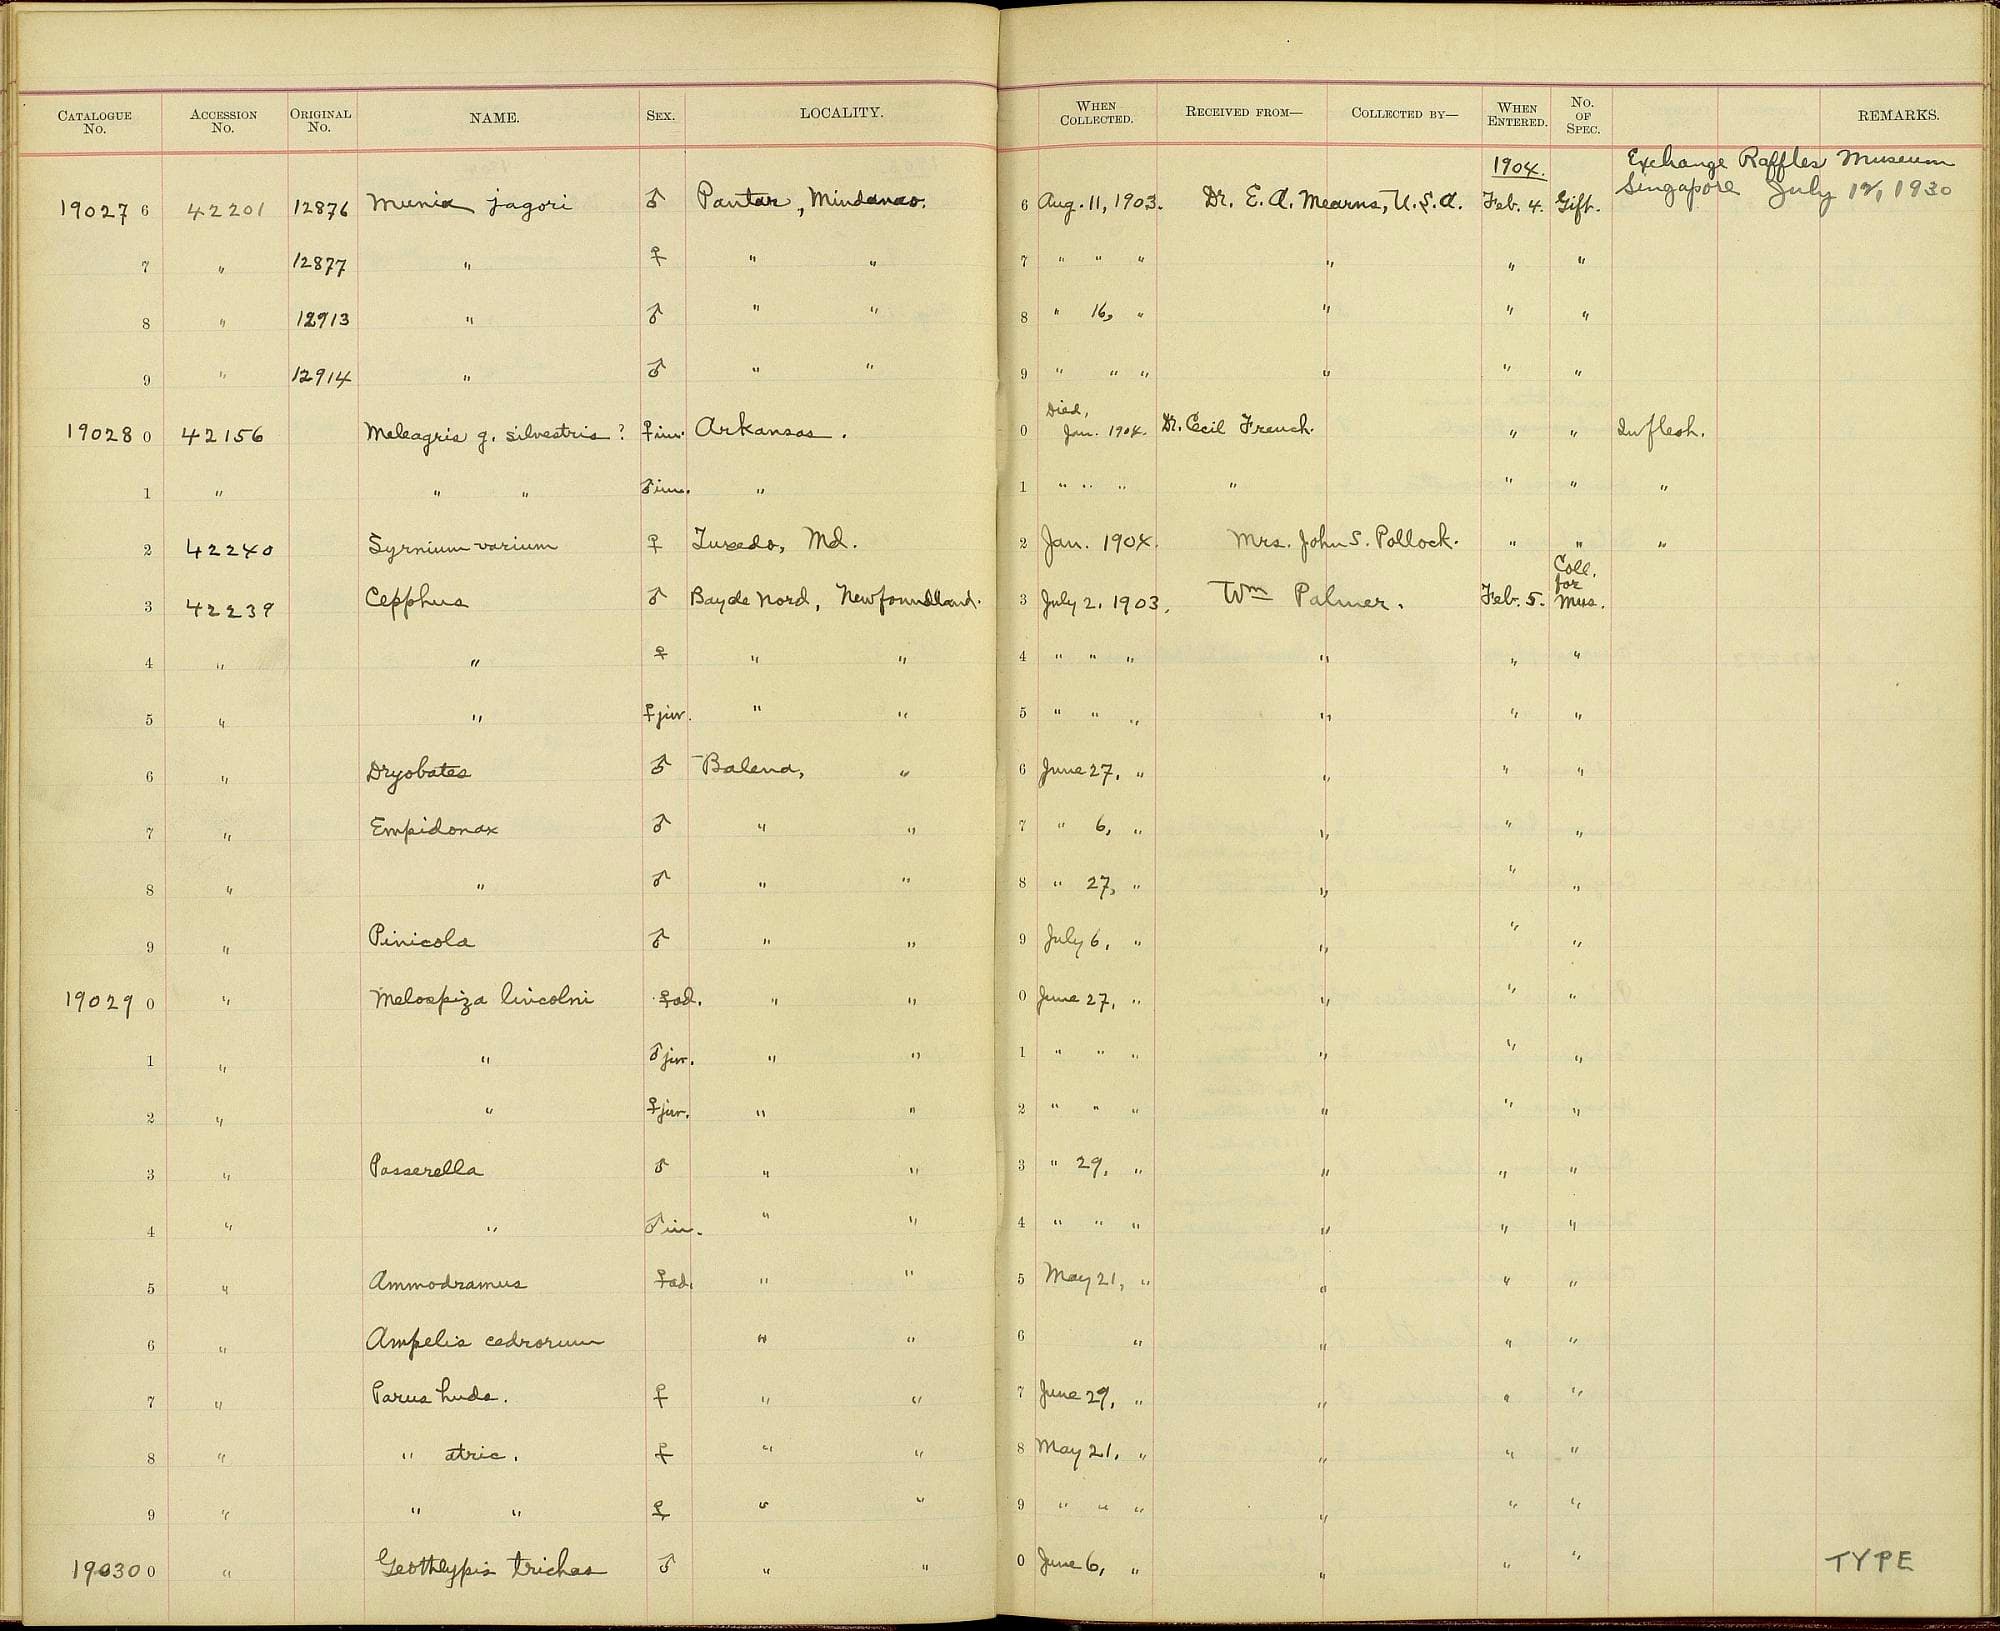 CATALOGUE No. ACCESSION No. ORIGINAL No. NAME. SEX. LOCALITY. WHEN COLLECTED. RECEIVED FROM— COLLECTED BY— WHEN ENTERED. No. OF SPEC. REMARKS.
1904. Exchange Raffles Museum
19027 6 42201 12876 Munia jagori ♂ Pantar, Mindanao. 6 Aug. 11, 1903. Dr. E. A. Mearns, U.S.A. Feb. 4. Gift. Singapore July 12, 1930
7 " 12877 " ♀ " " 7 " " " " " "
8 " 12913 " ♂ " " 8 " 16, " " " "
9 " 12914 " ♂ " " 9 " " " " " "
19028 0 42156 Meleagris g. silvestris? ♀ im. Arkansas. 0 Died, Jan. 1904. Dr. Cecil French. " " In flesh.
1 " " " ♂ im. " 1 " " " " " " "
2 42240 Syrnium varium ♀ Tuxedo, Md. 2 Jan. 1904. Mrs. John S. Pollock. " " "
3 42239 Cepphus ♂ Bay de Nord, Newfoundland. 3 July 2, 1903. Wm Palmer. Feb. 5. Coll. for Mus.
4 " " ♀ " " 4 " " " " " "
5 " " ♀ juv. " " 5 " " " " " "
6 " Dryobates ♂ Balena, " 6 June 27, " " " "
7 " Empidonax ♂ " " 7 " 6, " " " "
8 " " ♂ " " 8 " 27, " " " "
9 " Pinicola ♂ " " 9 July 6, " " " "
19029 0 " Melospiza lincolni ♀ ad. " " 0 June 27, " " " "
1 " " ♂ juv. " " 1 " " " " " "
2 " " ♀ juv. " " 2 " " " " " "
3 " Passerella ♂ " " 3 " 29, " " " "
4 " " ♂ im. " " 4 " " " " " "
5 " Ammodramus ♀ ad. " " 5 May 21, " " " "
6 " Ampelis cedrorum " " 6 " " " "
7 " Parus huds. ♀ " " 7 June 29, " " " "
8 " " atric. ♀ " " 8 May 21, " " " "
9 " " " ♀ " " 9 " " " " " "
19030 0 " Geothlypis trichas ♂ " " 0 June 6, " " " " TYPE